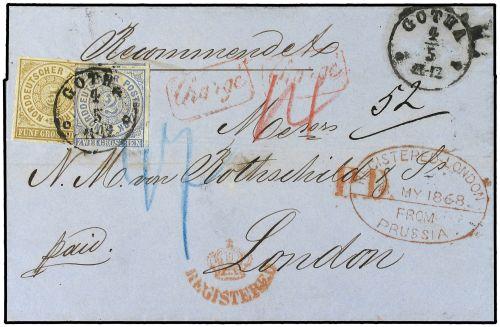 GOTHA
4
5
11-12
Recommendet
NORDDEUTSCHER POSTBEZIRK
FÜNF GROSCHEN
ZWEI GROSCHEN
GOTHA
4
5
11-12
Chargé
Chargé
52
Messrs
N. M. von Rothschild & Ss
P.D.
REGISTERED LONDON
MY 1868
FROM
PRUSSIA
paid.
London
REGISTERED